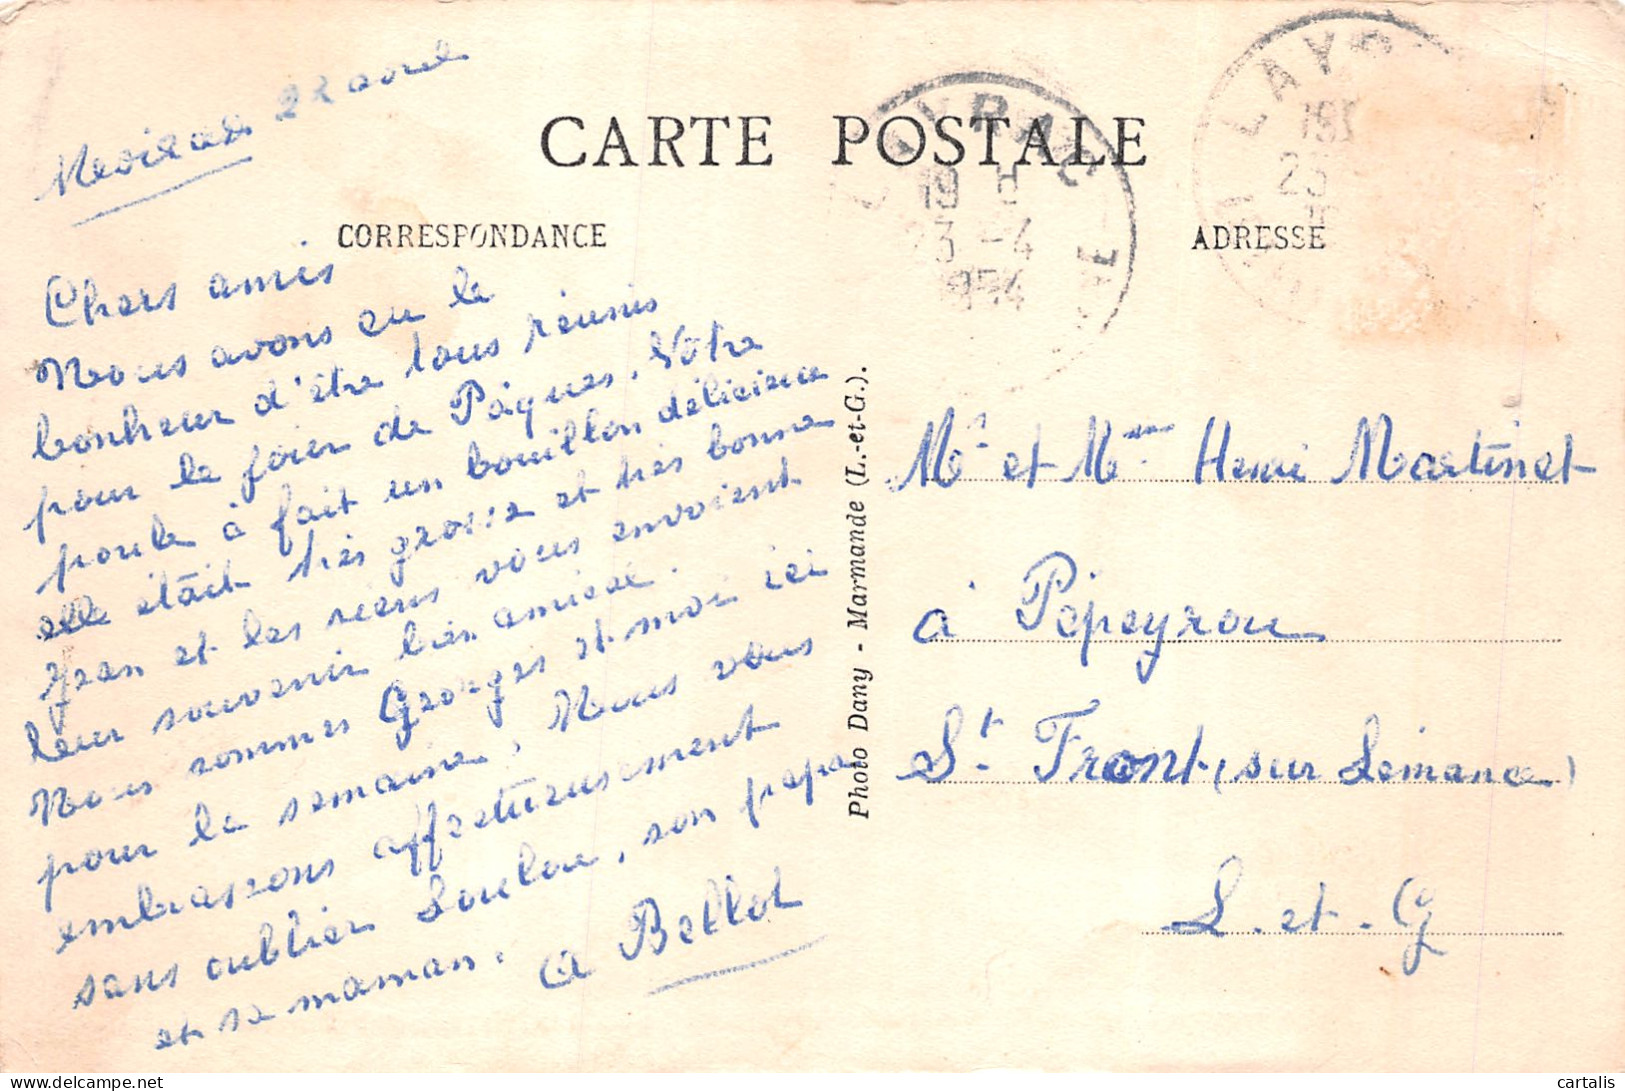 22 avril
CARTE POSTALE
CORRESPONDANCE
ADRESSE
LAYRAC
19 H
23 -4
1954
LAYR
23
Chers amis
Nous avons eu le
bonheur d'être tous réunis
pour le foier de Pâques. Votre
poule à fait un bouillon délicieux
elle était très grosse et très bonne
Jean et les siens vous envoient
leur souvenir bien amical.
Nous sommes Georges et moi ici
pour la semaine, Nous vous
embrassons affectueusement
sans oublier Loulou, son papa
et sa maman.
A Bellot
Photo Dany - Marmande (L.-et-G.).
Mr et Mme Henri Martinet
à Pépeyrou
St Front, (sur Lémance)
L. et. G
cartalis